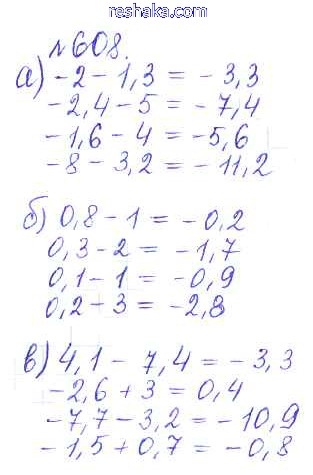 www.
reshaka.com
№608.
а) -2 - 1,3 = -3,3
-2,4 - 5 = -7,4
-1,6 - 4 = -5,6
-8 - 3,2 = -11,2
б) 0,8 - 1 = -0,2
0,3 - 2 = -1,7
0,1 - 1 = -0,9
0,2 - 3 = -2,8
в) 4,1 - 7,4 = -3,3
-2,6 + 3 = 0,4
-7,7 - 3,2 = -10,9
-1,5 + 0,7 = -0,8